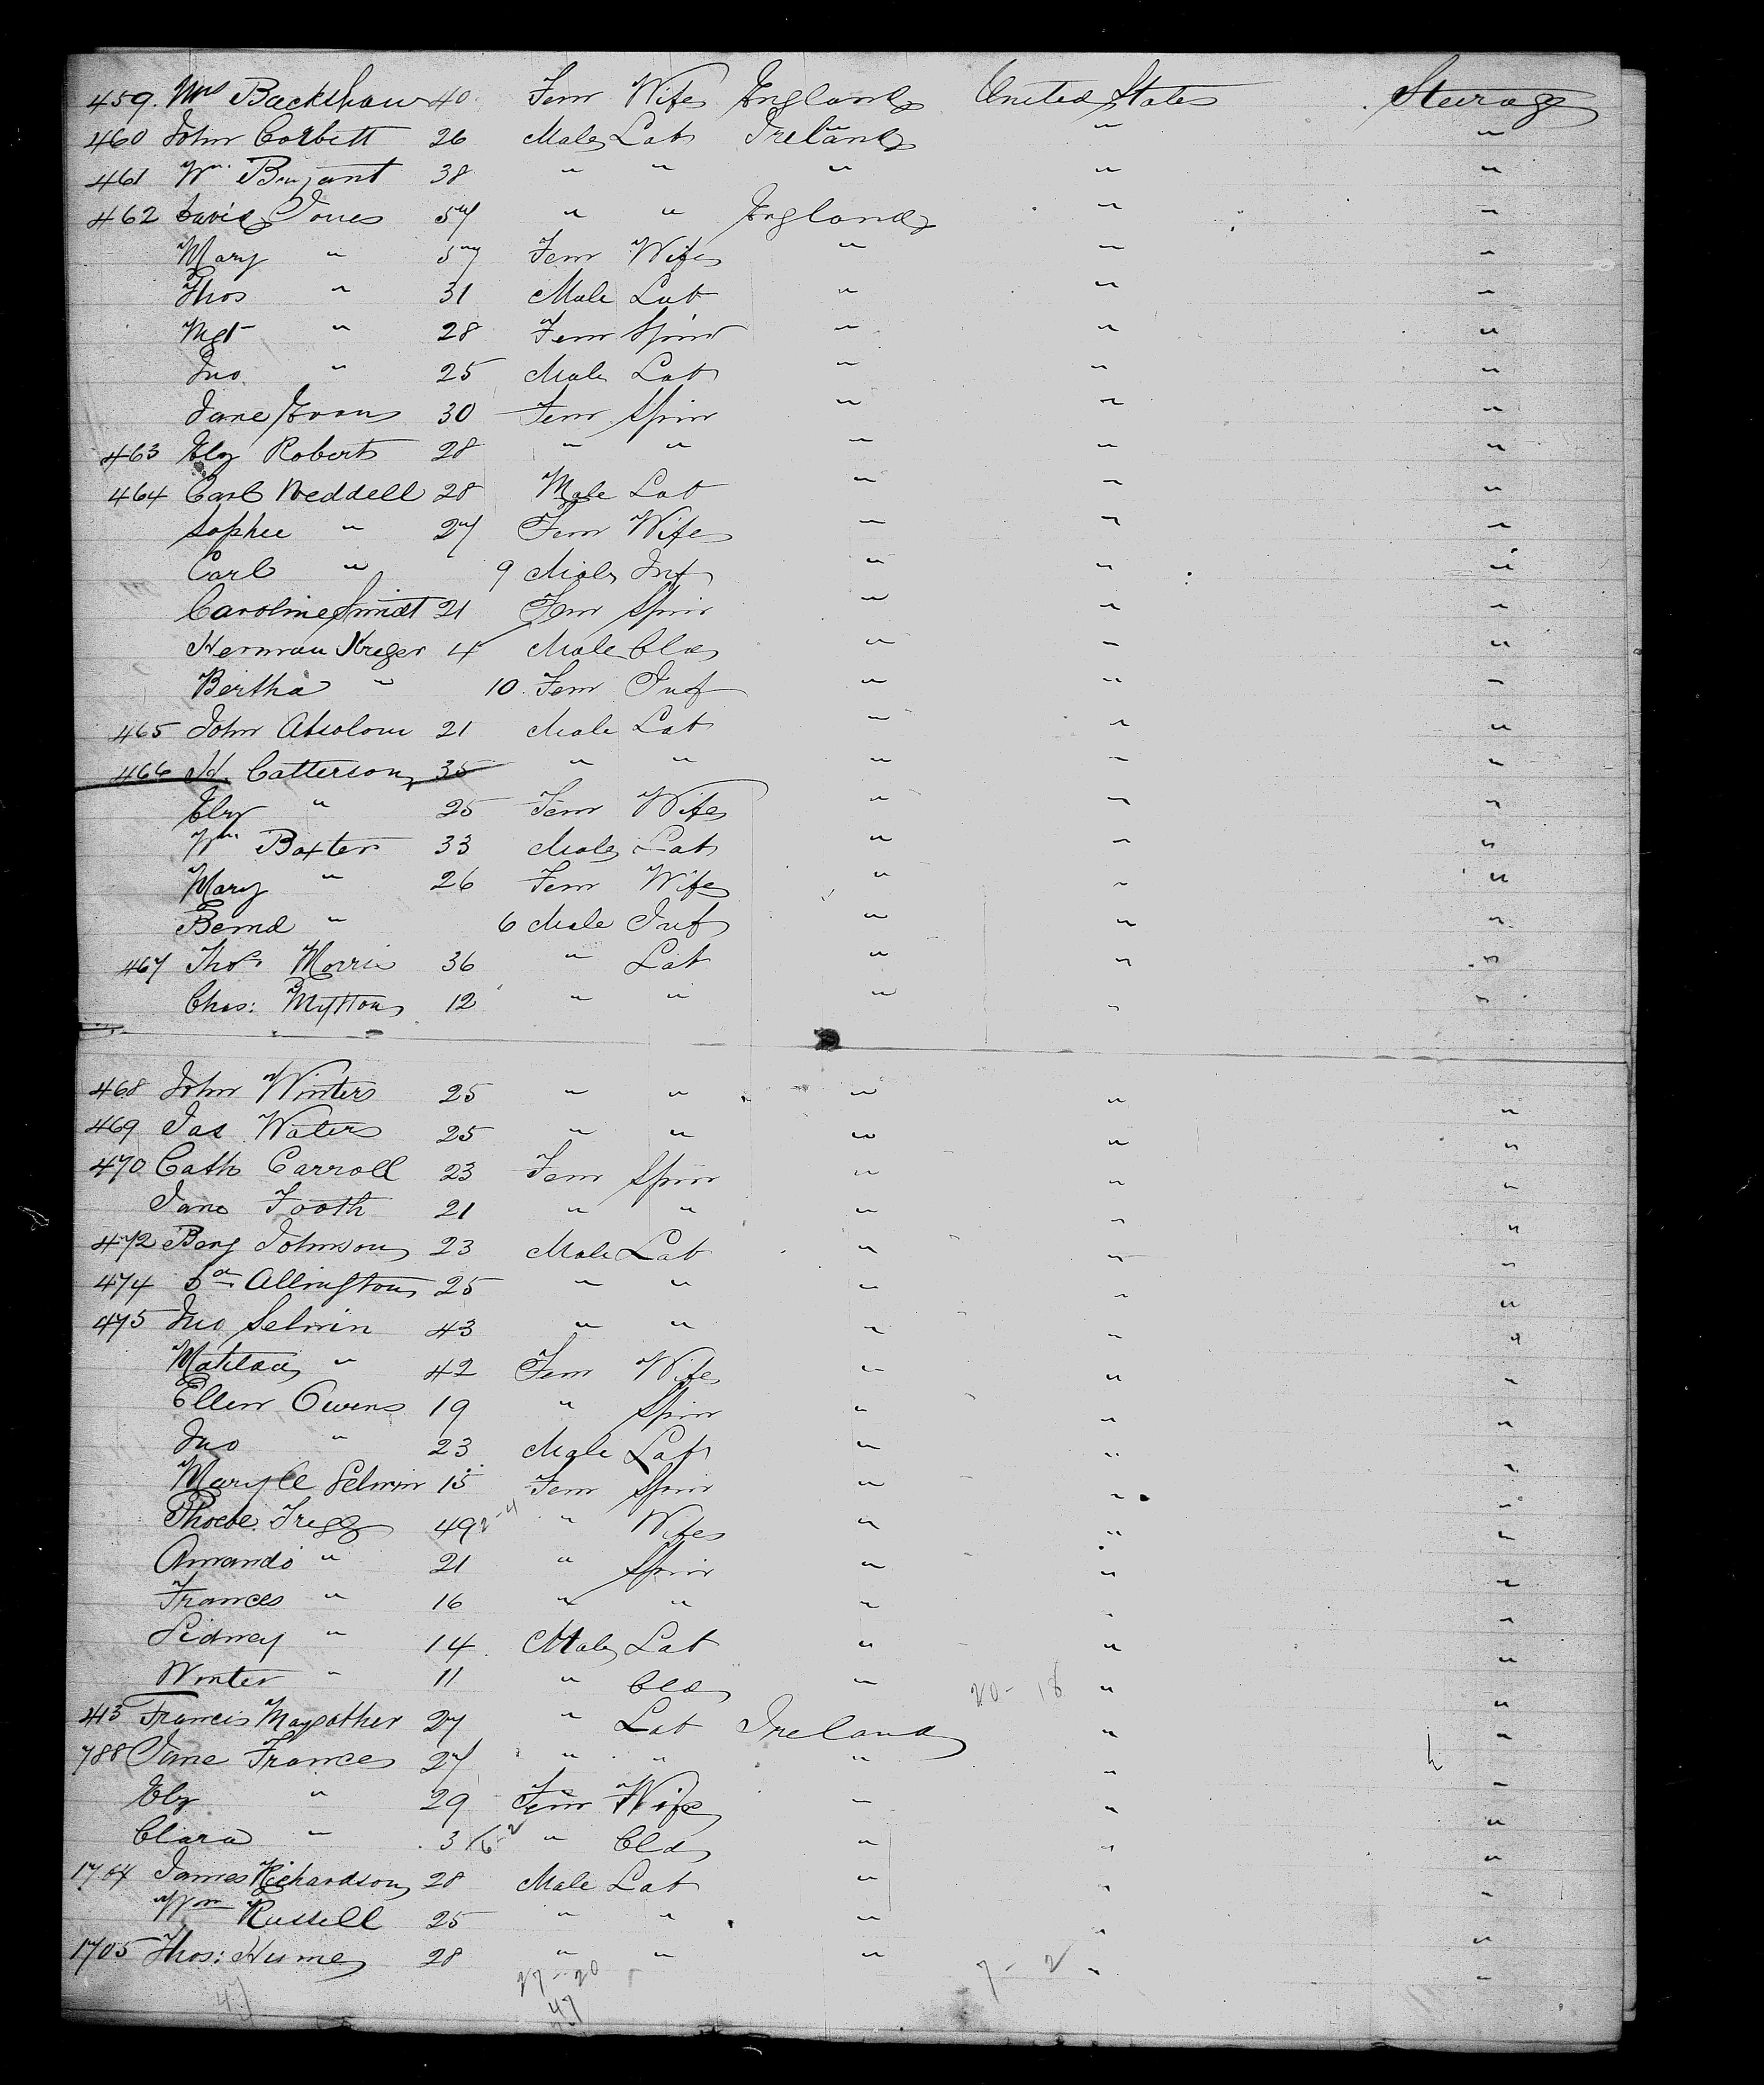 459. Mrs Backshaw 40 Fem Wife England United States Steerage
460 John Corbett 26 Male Lab Ireland " "
461 Wm. Bryant 38 " " " " "
462 David Jones 57 " " England " "
Mary " 57 Fem Wife " " "
Thos " 31 Male Lab " " "
Mgt " 28 Fem Spin " " "
Jno. " 25 Male Lab " " "
Jane Evans 30 Fem Spin " " "
463 Elz Roberts 28 " " " " "
464 Carl Weddell 28 Male Lab " " "
Sophie " 27 Fem Wife " " "
Carl " 9 Male Inf " " "
Caroline Smidt 21 Fem Spin " " "
Herman Kreger 4 Male Cld " " "
Bertha " 10 Fem Inf " " "
465 John Absolom 21 Male Lab " " "
466 H. Catterson 35 " " " " "
Elz " 25 Fem Wife " " "
Wm Baxter 33 Male Lab " " "
Mary " 26 Fem Wife " " "
Bernd " 6 Male Inf " " "
467 Thos Morris 36 " Lab " " "
Chas: Mytton 12 " " " " "
468 John Winters 25 " " " " "
469 Jas Waters 25 " " " " "
470 Cath Carroll 23 Fem Spin " " "
Jane Footh 21 " " " " "
472 Benj Johnson 23 Male Lab " " "
474 Allington 25 " " " " "
475 Jno Selwin 43 " " " " "
Matilda " 42 Fem Wife " " "
Ellen Owens 19 " Spin " " "
Jno " 23 Male Lab " " "
Mary A Selwin 15 Fem Spin " " "
Phoebe Tregg 49 " Wife " " "
Amanda " 21 " Spin " " "
Frances " 16 " " " " "
Sidney " 14 Male Lab " " "
Winter " 11 " Cld " 20-18 " "
413 Francis Mapother 27 " Lab Ireland " "
788 Jane France 27 " " " " "
Elz " 29 Fem Wife " " "
Clara " 3 " Cld " " "
1704 James Richardson 28 Male Lab " " "
Wm Russell 25 " " " " "
1705 Thos: Hume 28 " " " " "
47 27-20 7-2
47